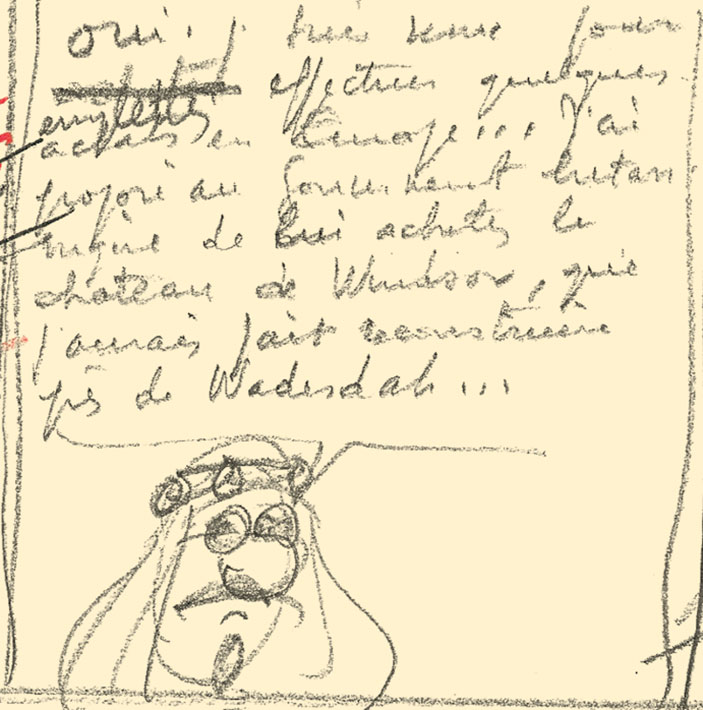 Oui. J' suis venu pour
effectuer quelques
emplettes
achats en Europe... J'ai
proposé au Gouvernement britan-
nique de lui acheter le
château de Windsor, que
j'aurais fait reconstruire
près de Wadesdah...